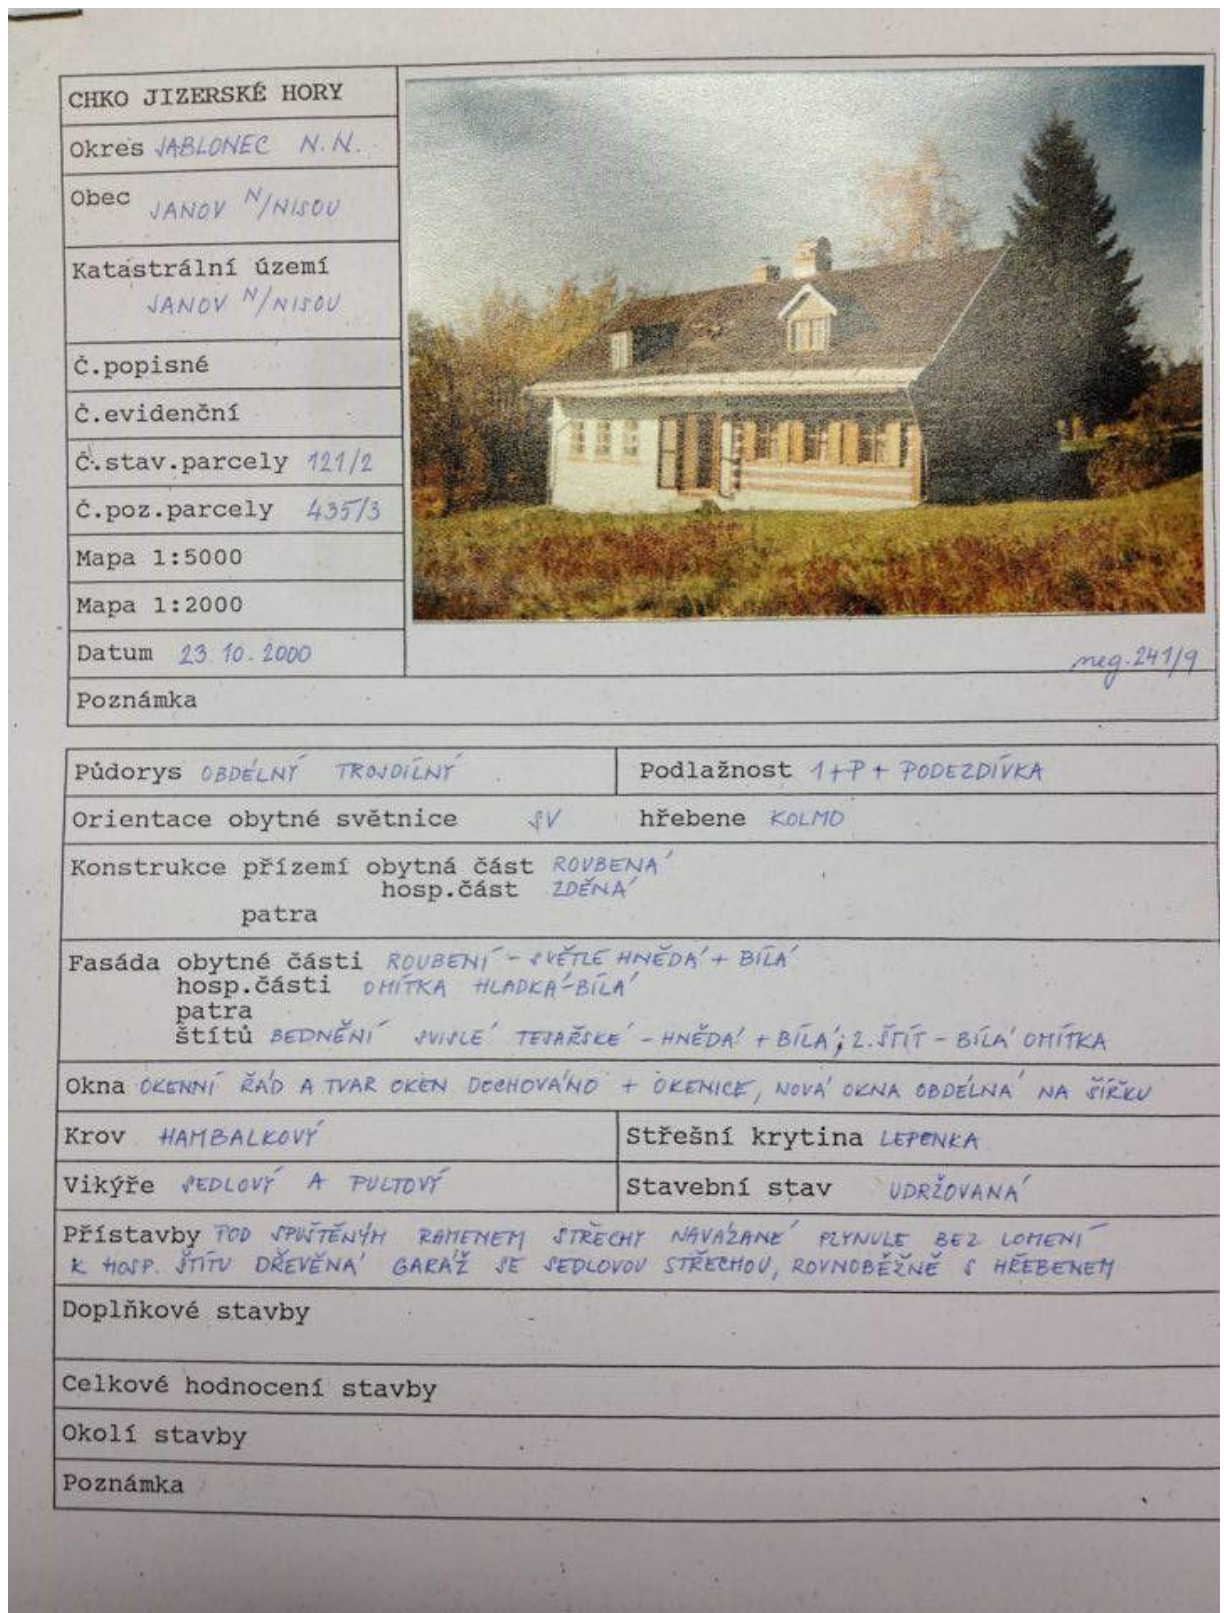 CHKO JIZERSKÉ HORY
Okres JABLONEC N.N.
Obec JANOV N/NISOU
Katastrální území
JANOV N/NISOU
Č.popisné
Č.evidenční
Č.stav.parcely 121/2
Č.poz.parcely 435/3
Mapa 1:5000
Mapa 1:2000
Datum 23.10.2000
neg.241/9
Poznámka
Půdorys OBDÉLNÝ TROJDÍLNÝ
Podlažnost 1+P+PODEZDÍVKA
Orientace obytné světnice SV hřebene KOLMO
Konstrukce přízemí obytná část ROUBENÁ
hosp.část ZDĚNÁ
patra
Fasáda obytné části ROUBENÍ - SVĚTLE HNĚDÁ + BÍLÁ
hosp.části OMÍTKA HLADKÁ-BÍLÁ
patra
štítů BEDNĚNÍ SVISLÉ TESAŘSKÉ - HNĚDÁ + BÍLÁ; 2.ŠTÍT - BÍLÁ OMÍTKA
Okna OKENNÍ ŘÁD A TVAR OKEN DOCHOVÁNO + OKENICE, NOVÁ OKNA OBDÉLNÁ NA ŠÍŘKU
Krov HAMBALKOVÝ
Střešní krytina LEPENKA
Vikýře SEDLOVÝ A PULTOVÝ
Stavební stav UDRŽOVANÁ
Přístavby POD SPUŠTĚNÝM RAMENEM STŘECHY NAVÁZANÉ PLYNULE BEZ LOMENÍ
K HOSP. ŠTÍTU DŘEVĚNÁ GARÁŽ SE SEDLOVOU STŘECHOU, ROVNOBĚŽNĚ S HŘEBENEM
Doplňkové stavby
Celkové hodnocení stavby
Okolí stavby
Poznámka